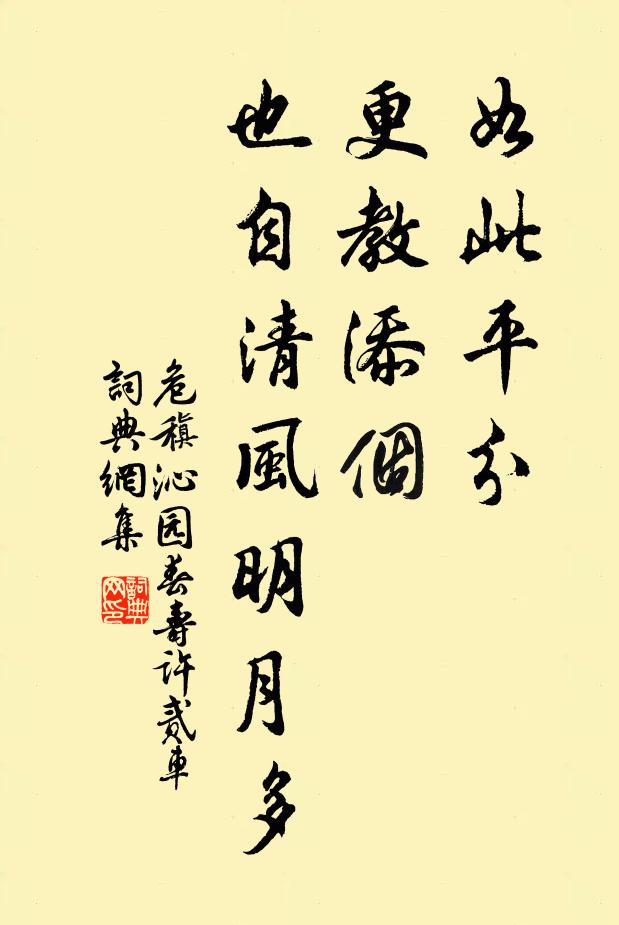 如此平分
更教添個
也自清風明月多
危稹沁园春壽许貳車
詞典網集
詞典网印